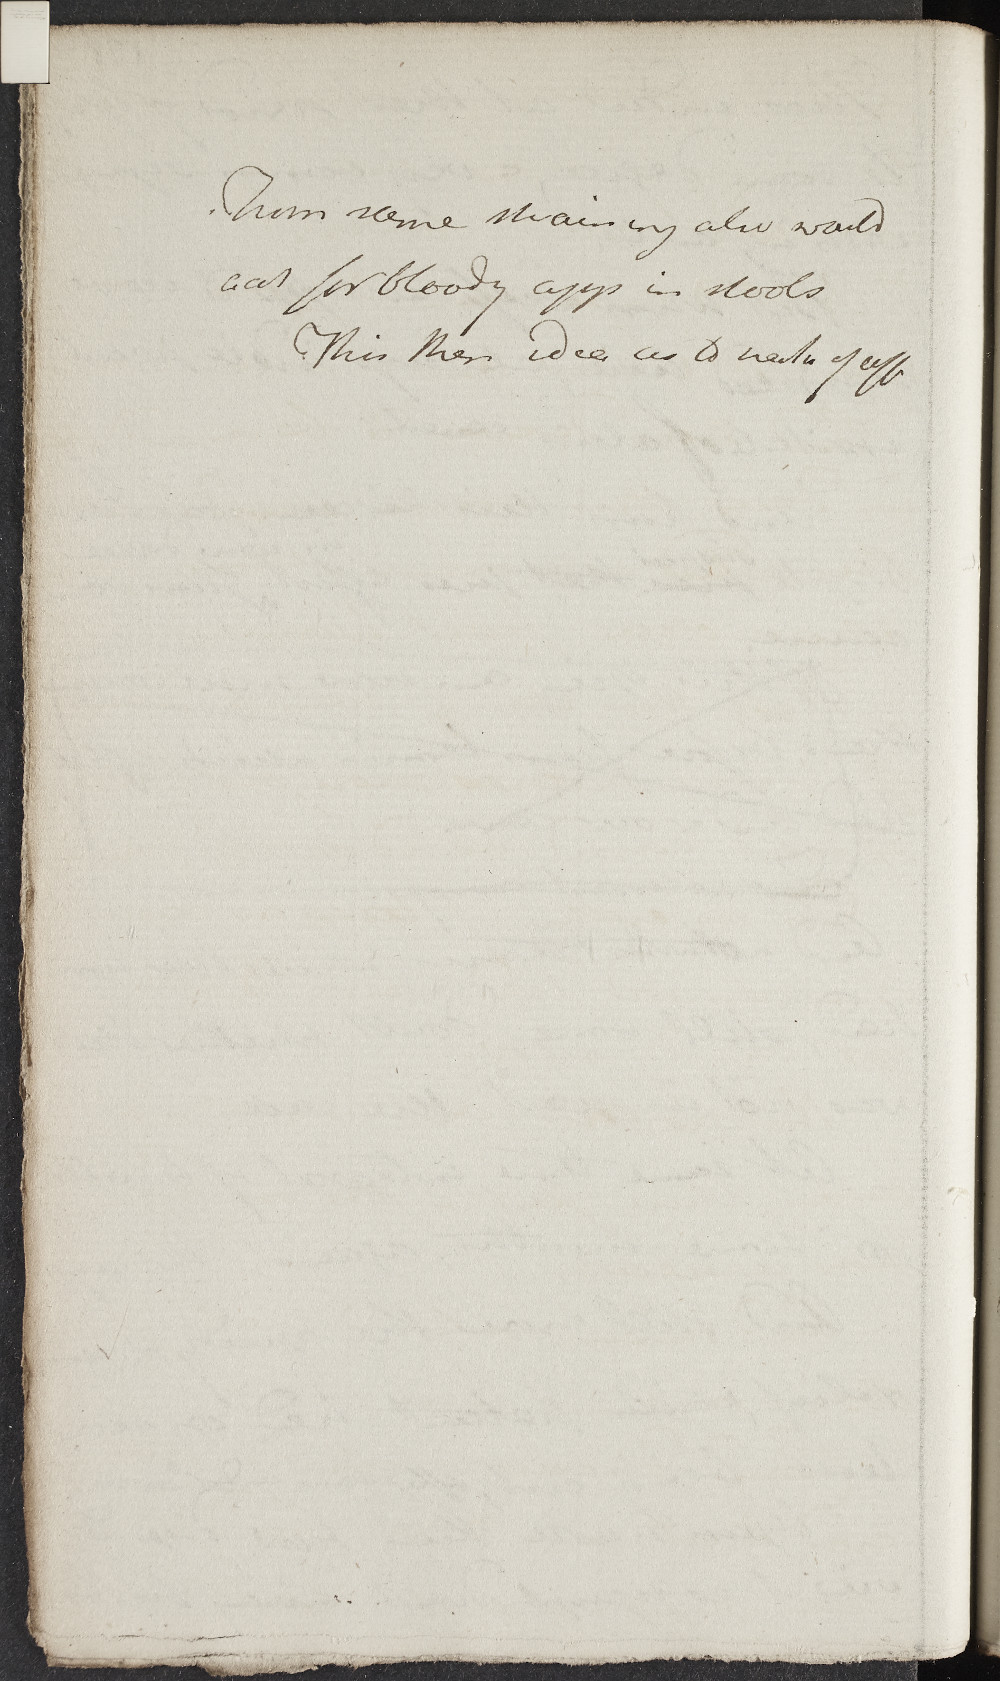 From same straining also would
act for bloody app in stools
This then idea as to natu of aff